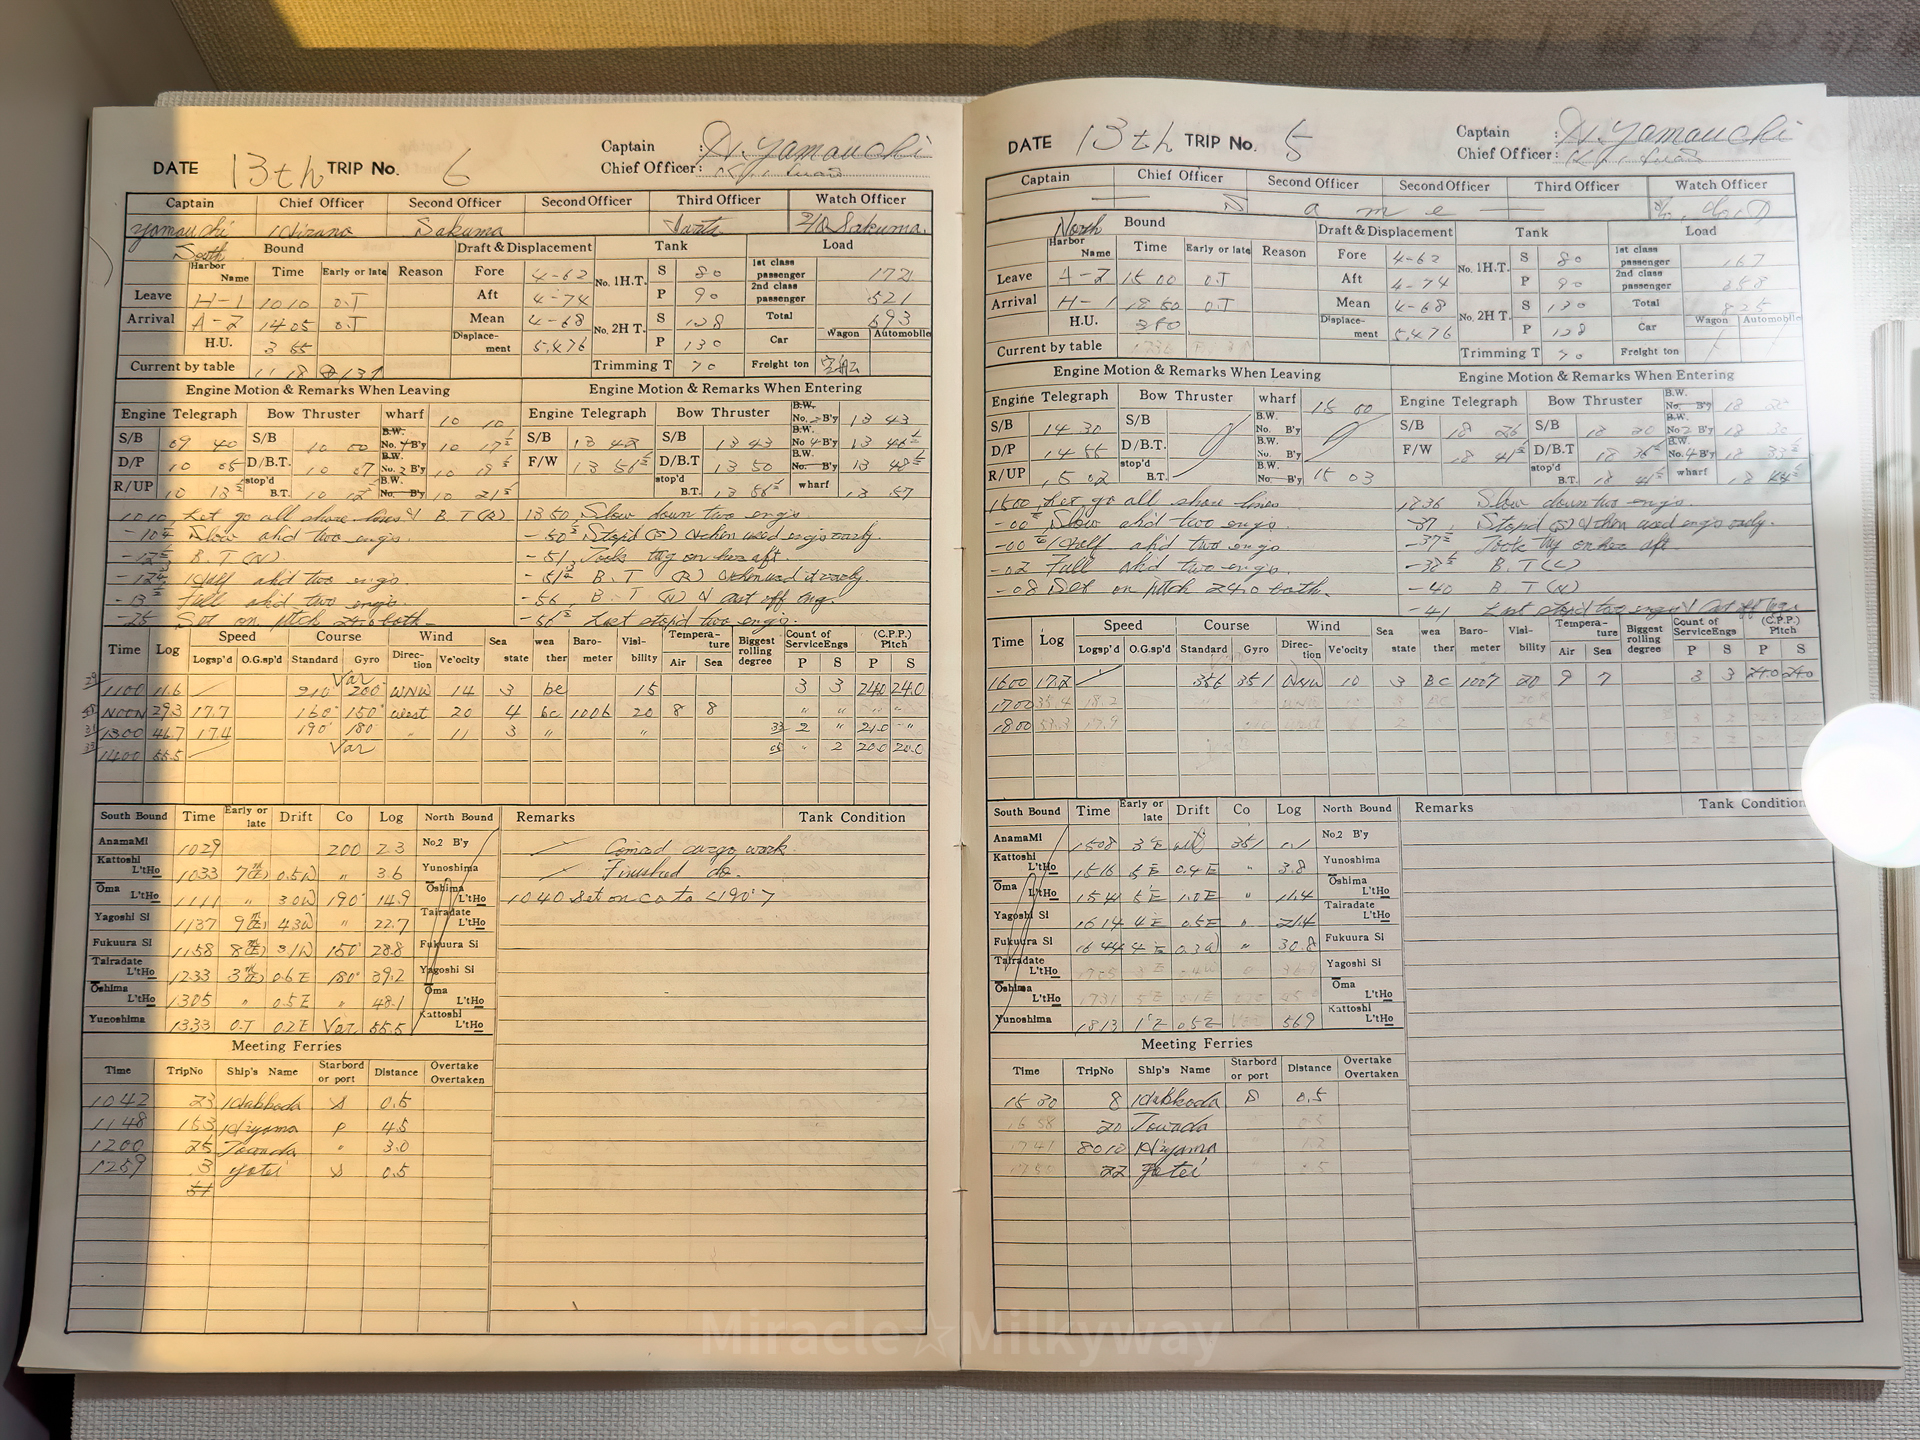 DATE 13th TRIP No. 6
Captain : H. Yamauchi
Chief Officer :
Captain Chief Officer Second Officer Second Officer Third Officer Watch Officer
Yamauchi Hirano Sakuma 2/O Sakuma.
South Bound Draft & Displacement Tank Load
Harbor Name Time Early or late Reason Fore 4-62 No. 1H.T. S 80 1st class passenger 172
Leave H-1 1010 O.T Aft 4-74 P 90 2nd class passenger 521
Arrival A-2 1405 O.T Mean 4-68 No. 2H T. S 128 Total 693
H.U. 3 55 Displacement 5,476 P 130 Car Wagon Automobile
Current by table Trimming T 70 Freight ton
Engine Motion & Remarks When Leaving Engine Motion & Remarks When Entering
Engine Telegraph Bow Thruster wharf 10 10 Engine Telegraph Bow Thruster B.W. No. 2 B'y 13 43
S/B 09 40 S/B 10 00 B.W. No. 4 B'y S/B 13 42 S/B 13 43 B.W. No 4 B'y
D/P 10 05 D/B.T. 10 07 B.W. No. 2 B'y F/W D/B.T 13 50 B.W. No. B'y
R/UP stop'd B.T. B.W. No. B'y stop'd B.T. wharf 13 57
1010 Let go all shore lines & B.T(R) 1350 Slow down two eng's.
Slow ah'd two eng's. Stop'd (S) & then used eng's variously.
B.T (N) -51 Took tug on her aft
Half ah'd two eng's. B.T (R) & then used it variously.
-13 Full ah'd two eng's. -56 B.T (N) & cast off tug.
-25 Set on pitch 24.0 both- Last stop'd two eng's.
Time Log Speed Course Wind Sea state wea ther Barometer Visibility Temperature Biggest rolling degree Count of Service Engs (C.P.P.) Pitch
Logsp'd O.G.sp'd Standard Gyro Direction Ve'ocity Air Sea P S P S
1100 11.6 210° Var 200° WNW 14 3 bc 15 3 3 24.0 24.0
NOON 29.3 17.7 160° 150° West 20 4 bc 1006 20 8 8 " " " "
1300 46.7 17.4 190° 180 " 11 3 " " 2 " 21.0 "
1400 55.5 Var " 2 20.0 20.0
South Bound Time Early or late Drift Co Log North Bound Remarks Tank Condition
AnamaMi 1029 200 2.3 No.2 B'y Com'cd cargo work.
Kattoshi L'tHo 1033 0.5W " 3.6 Yunoshima Finished do.
Ōma L'tHo 1111 " 3.0W 190° 14.9 Ōshima L'tHo 1040 Set on co to <190°>
Yagoshi Si 1137 4.3W " 22.7 Tairadate L'tHo
Fukuura Si 1158 3.1W 150° 28.8 Fukuura Si
Tairadate L'tHo 1233 0.6E 180° 39.2 Yagoshi Si
Ōshima L'tHo 1305 " 0.5E " 48.1 Ōma L'tHo
Yunoshima 1333 O.T 0.2E Var. 55.5 Kattoshi L'tHo
Meeting Ferries
Time TripNo Ship's Name Starbord or port Distance Overtake Overtaken
1042 23 Hakkoda S 0.5
1148 153 Hiyama P 4.5
1200 25 Towada " 3.0
1259 3 Yotei S 0.5
DATE 13th TRIP No. 5
Captain : H. Yamauchi
Chief Officer :
Captain Chief Officer Second Officer Second Officer Third Officer Watch Officer
S a m e
North Bound Draft & Displacement Tank Load
Harbor Name Time Early or late Reason Fore 4-62 No. 1H.T. S 80 1st class passenger 167
Leave A-2 15 00 O.T Aft 4-74 P 90 2nd class passenger 658
Arrival H-1 18 50 O.T Mean 4-68 No. 2H T. S 130 Total 825
H.U. 350 Displacement 5,476 P 128 Car Wagon Automobile
Current by table Trimming T 70 Freight ton
Engine Motion & Remarks When Leaving Engine Motion & Remarks When Entering
Engine Telegraph Bow Thruster wharf 15 00 Engine Telegraph Bow Thruster B.W. No. B'y
S/B 14 30 S/B B.W. No. B'y S/B 18 26 S/B 18 30 B.W. No 2 B'y 18 30
D/P 14 55 D/B.T. B.W. No. B'y F/W D/B.T B.W. No. 4 B'y
R/UP 15 02 stop'd B.T. B.W. No. B'y 15 03 stop'd B.T. wharf
1500 Let go all shore lines. 1836 Slow down two eng's.
-00 Slow ah'd two eng's. -37 Stop'd (S) & then used eng's variously.
Half ah'd two eng's Took tug on her aft.
-02 Full ah'd two eng's. B.T (L)
-08 Set on pitch 24.0 both. -40 B.T (N)
-41 Last stop'd two eng's & cast off tug.
Time Log Speed Course Wind Sea state wea ther Barometer Visibility Temperature Biggest rolling degree Count of Service Engs (C.P.P.) Pitch
Logsp'd O.G.sp'd Standard Gyro Direction Ve'ocity Air Sea P S P S
1600 17.2 356 351 WNW 10 3 BC 1007 20 9 7 3 3 24.0 24.0
1700 35.4 18.2
1800 53.3 17.9
South Bound Time Early or late Drift Co Log North Bound Remarks Tank Condition
AnamaMi 1508 3'E nil 351 1.1 No.2 B'y
Kattoshi L'tHo 1516 5'E 0.4E " 3.8 Yunoshima
Ōma L'tHo 1541 5'E 1.0E " 11.4 Ōshima L'tHo
Yagoshi Si 1614 4'E 0.5E " 21.4 Tairadate L'tHo
Fukuura Si 1644 4'E 0.3W " 30.8 Fukuura Si
Tairadate L'tHo 1705 Yagoshi Si
Ōshima L'tHo 1731 5'E 0.1E Ōma L'tHo
Yunoshima 1813 1'E 0.5E 56.9 Kattoshi L'tHo
Meeting Ferries
Time TripNo Ship's Name Starbord or port Distance Overtake Overtaken
15 30 8 Hakkoda S 0.5
16 58 20 Towada
17 41 8010 Hiyama
17 50 22 Yotei
Miracle☆Milkyway